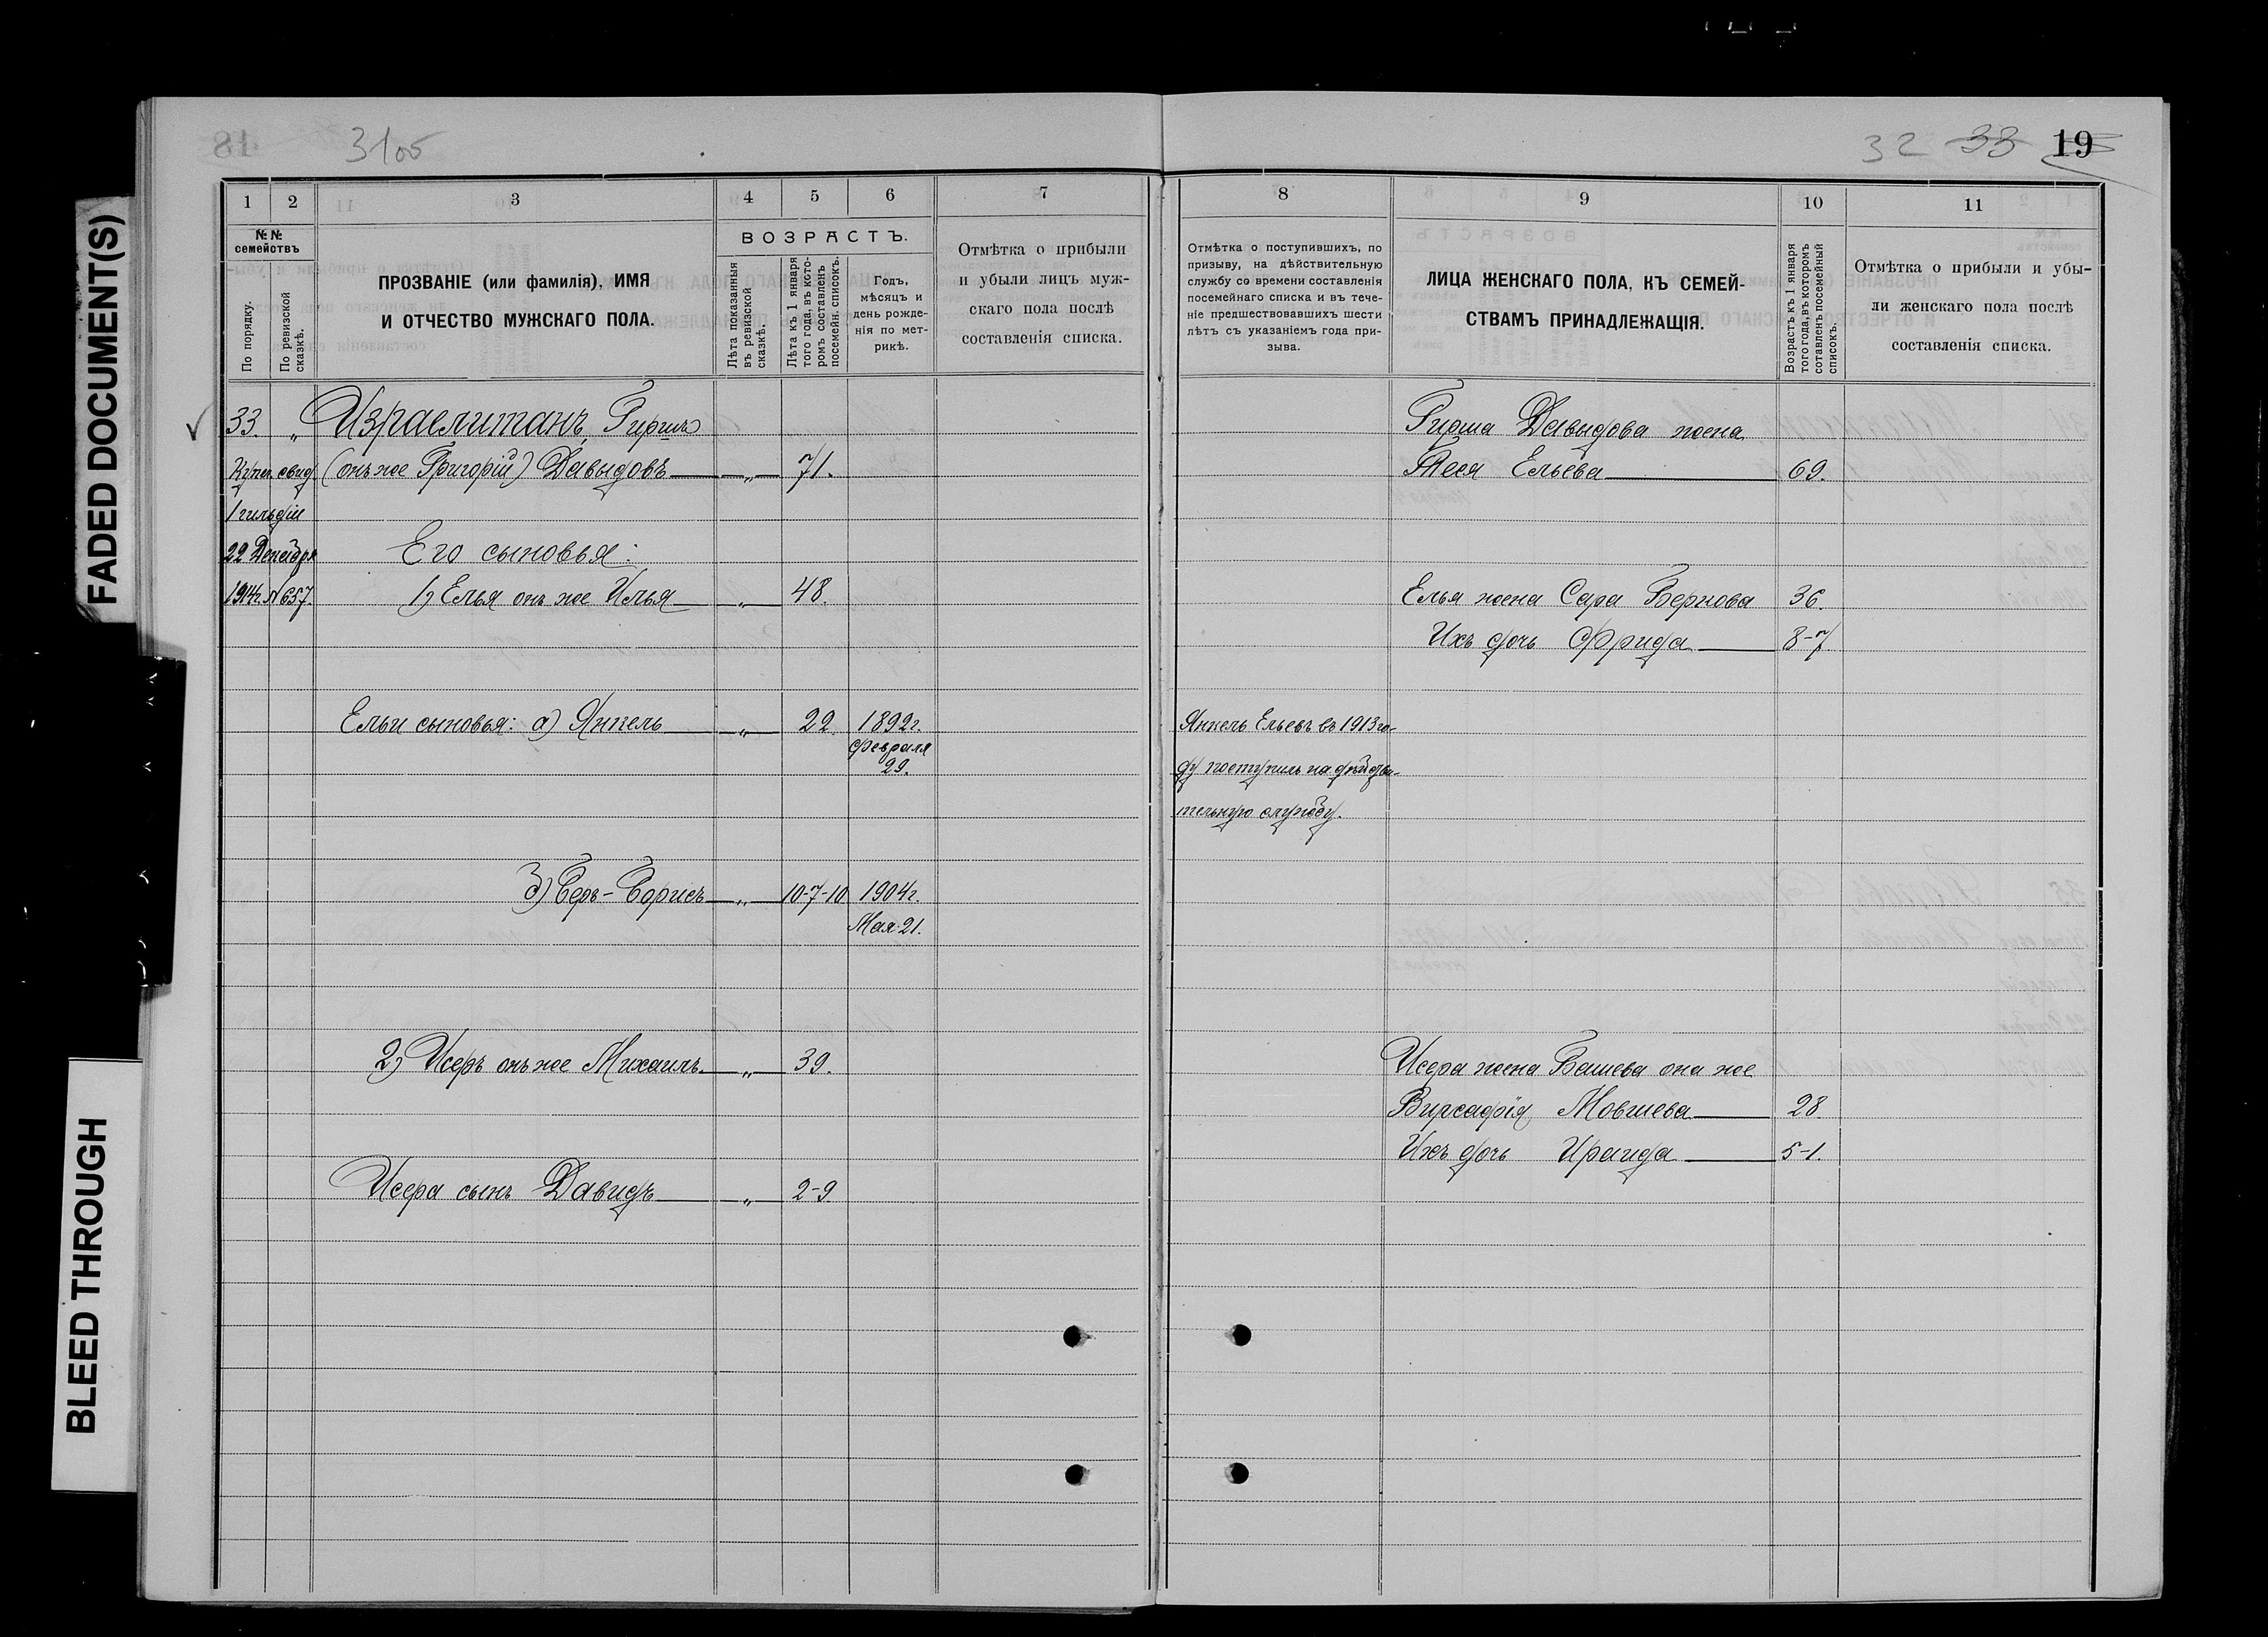 FADED DOCUMENT(S)
BLEED THROUGH
31об
32 33 19
1 2 3 4 5 6 7
№№ семействъ
По порядку.
По ревизской сказкѣ.
ПРОЗВАНІЕ (или фамилія), ИМЯ
И ОТЧЕСТВО МУЖСКАГО ПОЛА.
ВОЗРАСТЪ.
Лѣта показанныя
въ ревизской
сказкѣ.
Лѣта къ 1 января
того года, въ кото-
ромъ составленъ
посемейн. списокъ.
Годъ,
мѣсяцъ и
день рожде-
нія по мет-
рикѣ.
Отмѣтка о прибыли
и убыли лицъ муж-
скаго пола послѣ
составленія списка.
33. „ Израелитанъ, Гиршъ
Купеч. свид. (онъ же Григорій) Давыдовъ „ 71.
1 гильдіи
22 Декабря Его сыновья:
1914г. №657. 1) Елья онъ же Илья „ 48.
Ельи сыновья: а) Янкель „ 22. 1892г.
февраля
29.
б) Беръ-Борисъ „ 10-7-10 1904г.
Мая 21.
2) Исеръ онъ же Михаилъ. „ 39.
Исера сынъ Давидъ „ 2-9
8 9 10 11
Отмѣтка о поступившихъ, по
призыву, на дѣйствительную
службу со времени составленія
посемейнаго списка и въ тече-
ніе предшествовавшихъ шести
лѣтъ съ указаніемъ года при-
зыва.
ЛИЦА ЖЕНСКАГО ПОЛА, КЪ СЕМЕЙ-
СТВАМЪ ПРИНАДЛЕЖАЩІЯ.
Возрастъ къ 1 января
того года, въ которомъ
сотавленъ посемейный
списокъ.
Отмѣтка о прибыли и убы-
ли женскаго пола послѣ
составленія списка.
Гирша Давыдова жена
Ельева 69.
Елья жена Сара Бернова 36.
Ихъ дочь Фрида 8-7
Янкель Ельевъ въ 1913 го-
ду поступилъ на дѣйстви-
тельную службу.
Исера жена Башева она же
Вирсафія Мовшева 28
Ихъ дочь Ираида 5-1.